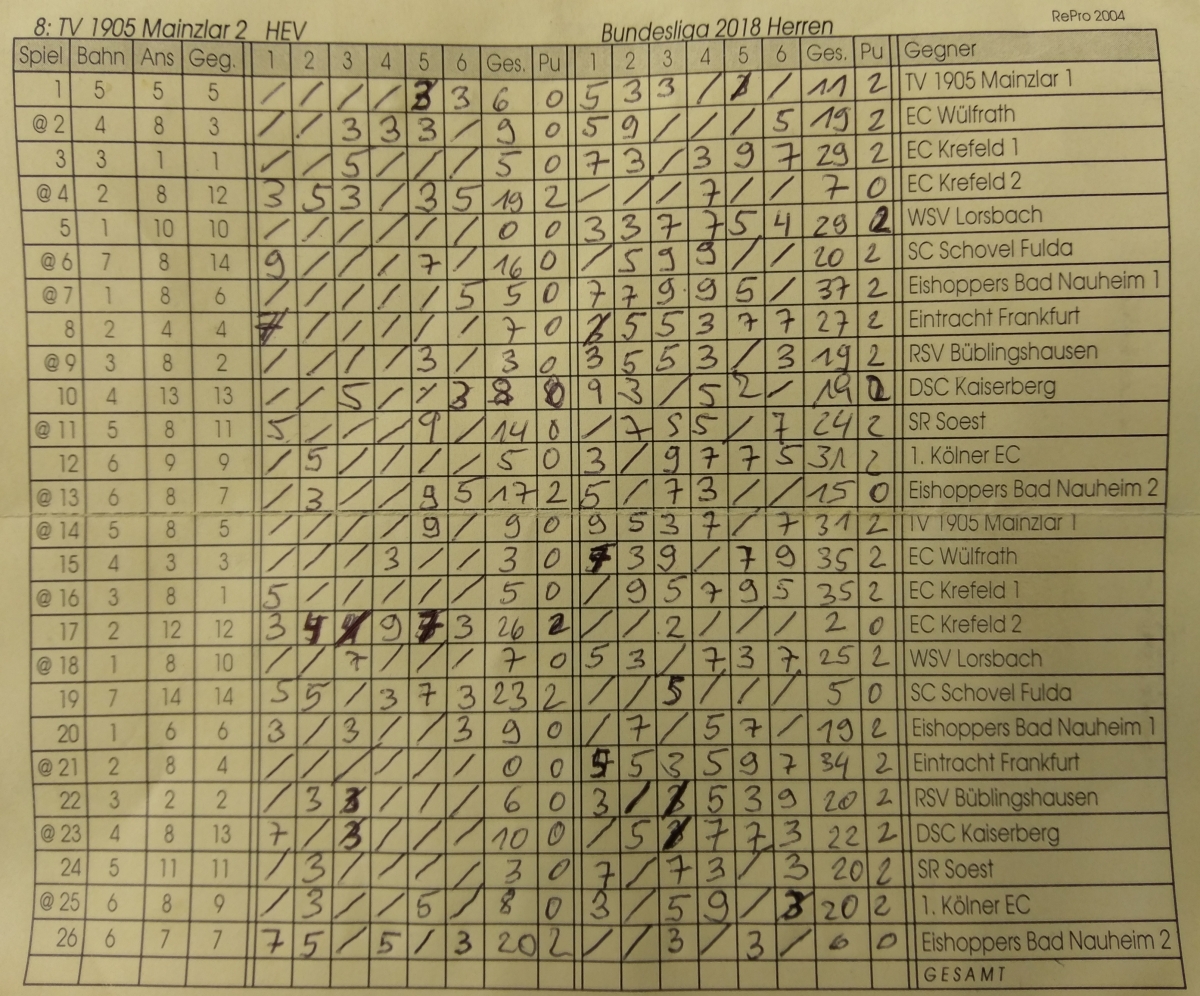 RePro 2004
8: TV 1905 Mainzlar 2 HEV Bundesliga 2018 Herren
Spiel Bahn Ans Geg. 1 2 3 4 5 6 Ges. Pu 1 2 3 4 5 6 Ges. Pu Gegner
1 5 5 5 / / / / 3 3 6 0 5 3 3 / / / 11 2 TV 1905 Mainzlar 1
@ 2 4 8 3 / / 3 3 3 / 9 0 5 9 / / / 5 19 2 EC Wülfrath
3 3 1 1 / / 5 / / / 5 0 7 3 / 3 9 7 29 2 EC Krefeld 1
@ 4 2 8 12 3 5 3 / 3 5 19 2 / / / 7 / / 7 0 EC Krefeld 2
5 1 10 10 / / / / / / 0 0 3 3 7 7 5 4 29 2 WSV Lorsbach
@ 6 7 8 14 9 / / / 7 / 16 0 / 5 9 9 / / 20 2 SC Schovel Fulda
@ 7 1 8 6 / / / / / 5 5 0 7 7 9 9 5 / 37 2 Eishoppers Bad Nauheim 1
8 2 4 4 7 / / / / / 7 0 / 5 5 3 7 7 27 2 Eintracht Frankfurt
@ 9 3 8 2 / / / / 3 / 3 0 3 5 5 3 / 3 19 2 RSV Büblingshausen
10 4 13 13 / / 5 / / 3 8 0 9 3 / 5 2 / 19 2 DSC Kaiserberg
@ 11 5 8 11 5 / / / 9 / 14 0 / 7 5 5 / 7 24 2 SR Soest
12 6 9 9 / 5 / / / / 5 0 3 / 9 7 7 5 31 2 1. Kölner EC
@ 13 6 8 7 / 3 / / 9 5 17 2 5 / 7 3 / / 15 0 Eishoppers Bad Nauheim 2
@ 14 5 8 5 / / / / 9 / 9 0 9 5 3 7 / 7 31 2 TV 1905 Mainzlar 1
15 4 3 3 / / / 3 / / 3 0 3 9 / 7 9 35 2 EC Wülfrath
@ 16 3 8 1 5 / / / / / 5 0 / 9 5 7 9 5 35 2 EC Krefeld 1
17 2 12 12 3 4 / 9 7 3 26 2 / / 2 / / / 2 0 EC Krefeld 2
@ 18 1 8 10 / / 7 / / / 7 0 5 3 / 7 3 7 25 2 WSV Lorsbach
19 7 14 14 5 5 / 3 7 3 23 2 / / 5 / / / 5 0 SC Schovel Fulda
20 1 6 6 3 / 3 / / 3 9 0 / 7 / 5 7 / 19 2 Eishoppers Bad Nauheim 1
@ 21 2 8 4 / / / / / / 0 0 5 5 3 5 9 7 34 2 Eintracht Frankfurt
22 3 2 2 / 3 3 / / / 6 0 3 / / 5 3 9 20 2 RSV Büblingshausen
@ 23 4 8 13 7 / 3 / / / 10 0 / 5 / 7 7 3 22 2 DSC Kaiserberg
24 5 11 11 / 3 / / / / 3 0 7 / 7 3 / 3 20 2 SR Soest
@ 25 6 8 9 / 3 / / 5 / 8 0 3 / 5 9 / 3 20 2 1. Kölner EC
26 6 7 7 7 5 / 5 / 3 20 2 / / 3 / 3 / 6 0 Eishoppers Bad Nauheim 2
GESAMT